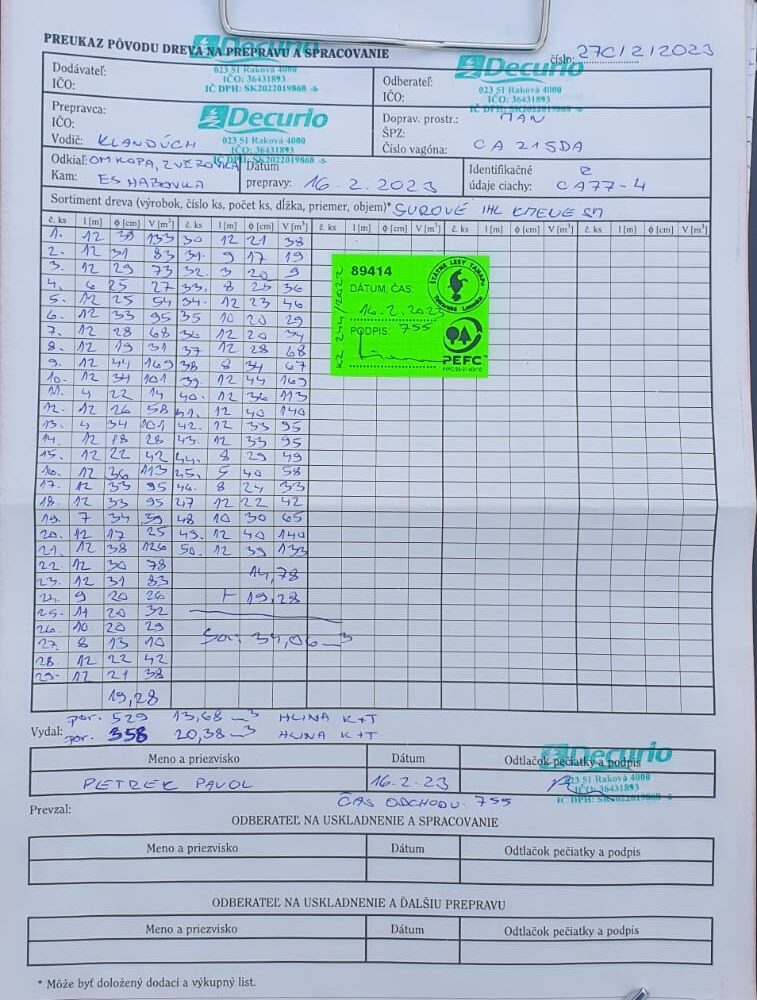 PREUKAZ PÔVODU DREVA NA PREPRAVU A SPRACOVANIE
číslo: 27C/2/2023
Decurio
023 51 Raková 4000
IČO: 36431893
IČ DPH: SK2022019868 -6-
Decurio
023 51 Raková 4000
IČO: 36431893
IČ DPH: SK2022019868 -6-
Dodávateľ:
IČO:
Odberateľ:
IČO:
Prepravca:
IČO:
Vodič: KLANDÚCH
Decurio
023 51 Raková 4000
IČO: 36431893
IČ DPH: SK2022019868 -6-
Doprav. prostr.: MAN
ŠPZ:
Číslo vagóna: CA 215DA
Odkiaľ: OM KOPA, ZVEROVKA
Kam: ES HABOVKA
Dátum
prepravy: 16.2.2023
Identifikačné
údaje ciachy: CA77-4
Sortiment dreva (výrobok, číslo ks, počet ks, dĺžka, priemer, objem)* SUROVÉ IHL KMENE SM
č. ks l [m] ϕ [cm] V [m³] č. ks l [m] ϕ [cm] V [m³] č. ks l [m] ϕ [cm] V [m³] č. ks l [m] ϕ [cm] V [m³] č. ks l [m] ϕ [cm] V [m³]
1. 12 39 133 30 12 21 38
2. 12 31 83 31. 9 17 19
3. 12 29 73 32. 3 20 9
4. 6 25 27 33. 8 25 36
5. 12 25 54 34. 12 23 46
6. 12 33 95 35 10 20 29
7. 12 28 68 36 12 20 34
8. 12 19 31 37 12 28 68
9. 12 44 169 38 8 34 67
10. 12 34 101 39. 12 44 169
11. 4 22 14 40. 12 36 113
12. 12 26 58 41. 12 40 140
13. 4 34 101 42. 12 33 95
14. 12 18 28 43. 12 33 95
15. 12 22 42 44. 8 29 49
16. 12 36 113 45. 5 40 58
17. 12 33 95 46. 8 24 33
18. 12 33 95 47 12 22 42
19. 7 34 59 48 10 30 65
20. 12 17 25 49. 12 40 140
21. 12 38 126 50. 12 39 133
22. 12 30 78 14,78
23. 12 31 83
24. 9 20 26 + 19,28
25. 11 20 32
26. 10 20 29
27. 8 13 10 34,06 m3
28. 12 22 42
29. 12 21 38
19,28
89414
ŠTÁTNE LESY TANAPU
DÁTUM, ČAS:
16.2.2023
PODPIS: 755
PEFC
por. 529 13,68 m3 HLINA K+T
Vydal: por. 358 20,38 m3 HLINA K+T
Decurio
023 51 Raková 4000
IČO: 36431893
IČ DPH: SK2022019868 -6-
Meno a priezvisko Dátum Odtlačok pečiatky a podpis
PETREK PAVOL 16.2.23
ČAS ODCHODU 755
Prevzal:
ODBERATEĽ NA USKLADNENIE A SPRACOVANIE
Meno a priezvisko Dátum Odtlačok pečiatky a podpis
ODBERATEĽ NA USKLADNENIE A ĎALŠIU PREPRAVU
Meno a priezvisko Dátum Odtlačok pečiatky a podpis
* Môže byť doložený dodací a výkupný list.